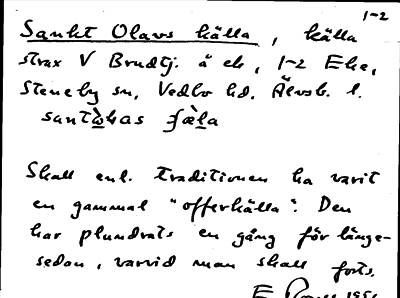 1-2
Sankt Olavs källa, källa
strax V Brudtj. å ek, 1-2 Eke,
Steneby sn, Vedbo hd. Älvsb. l.
Skall enl. traditionen ha varit
en gammal "offerkälla". Den
har plundrats en gång för länge-
sedan, varvid man skall forts.
E